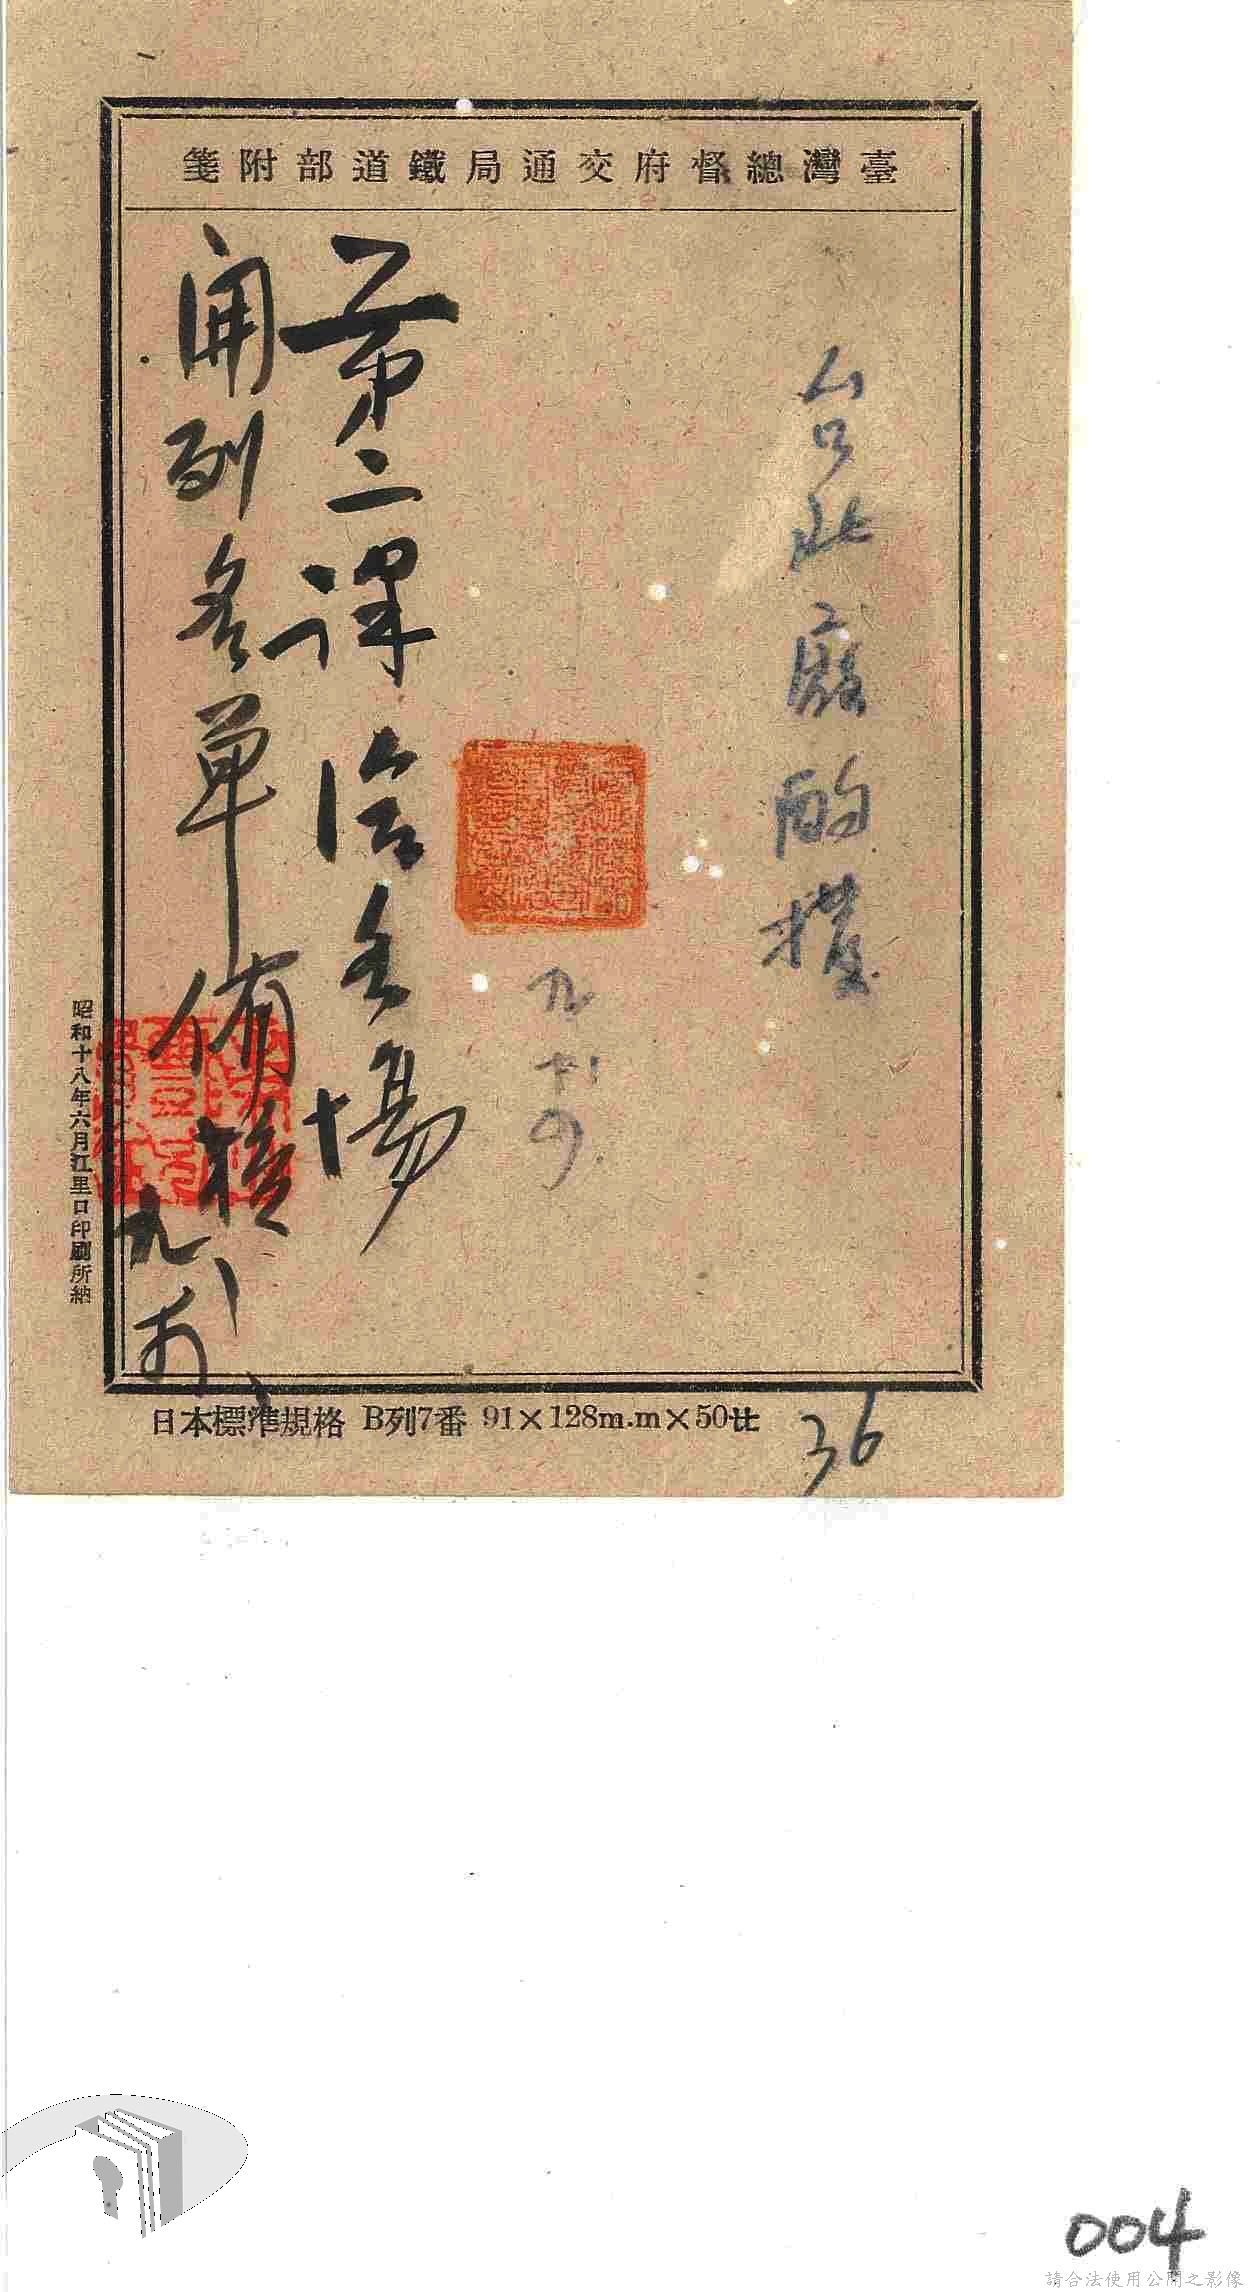 臺灣總督府交通局鐵道部附箋
台北廠酌擬
九廿
第二課洽各場
開列名單備核
九
昭和十八年六月江里口印刷所納
日本標準規格 B列7番 91×128m.m×50
36
004
請合法使用公開之影像